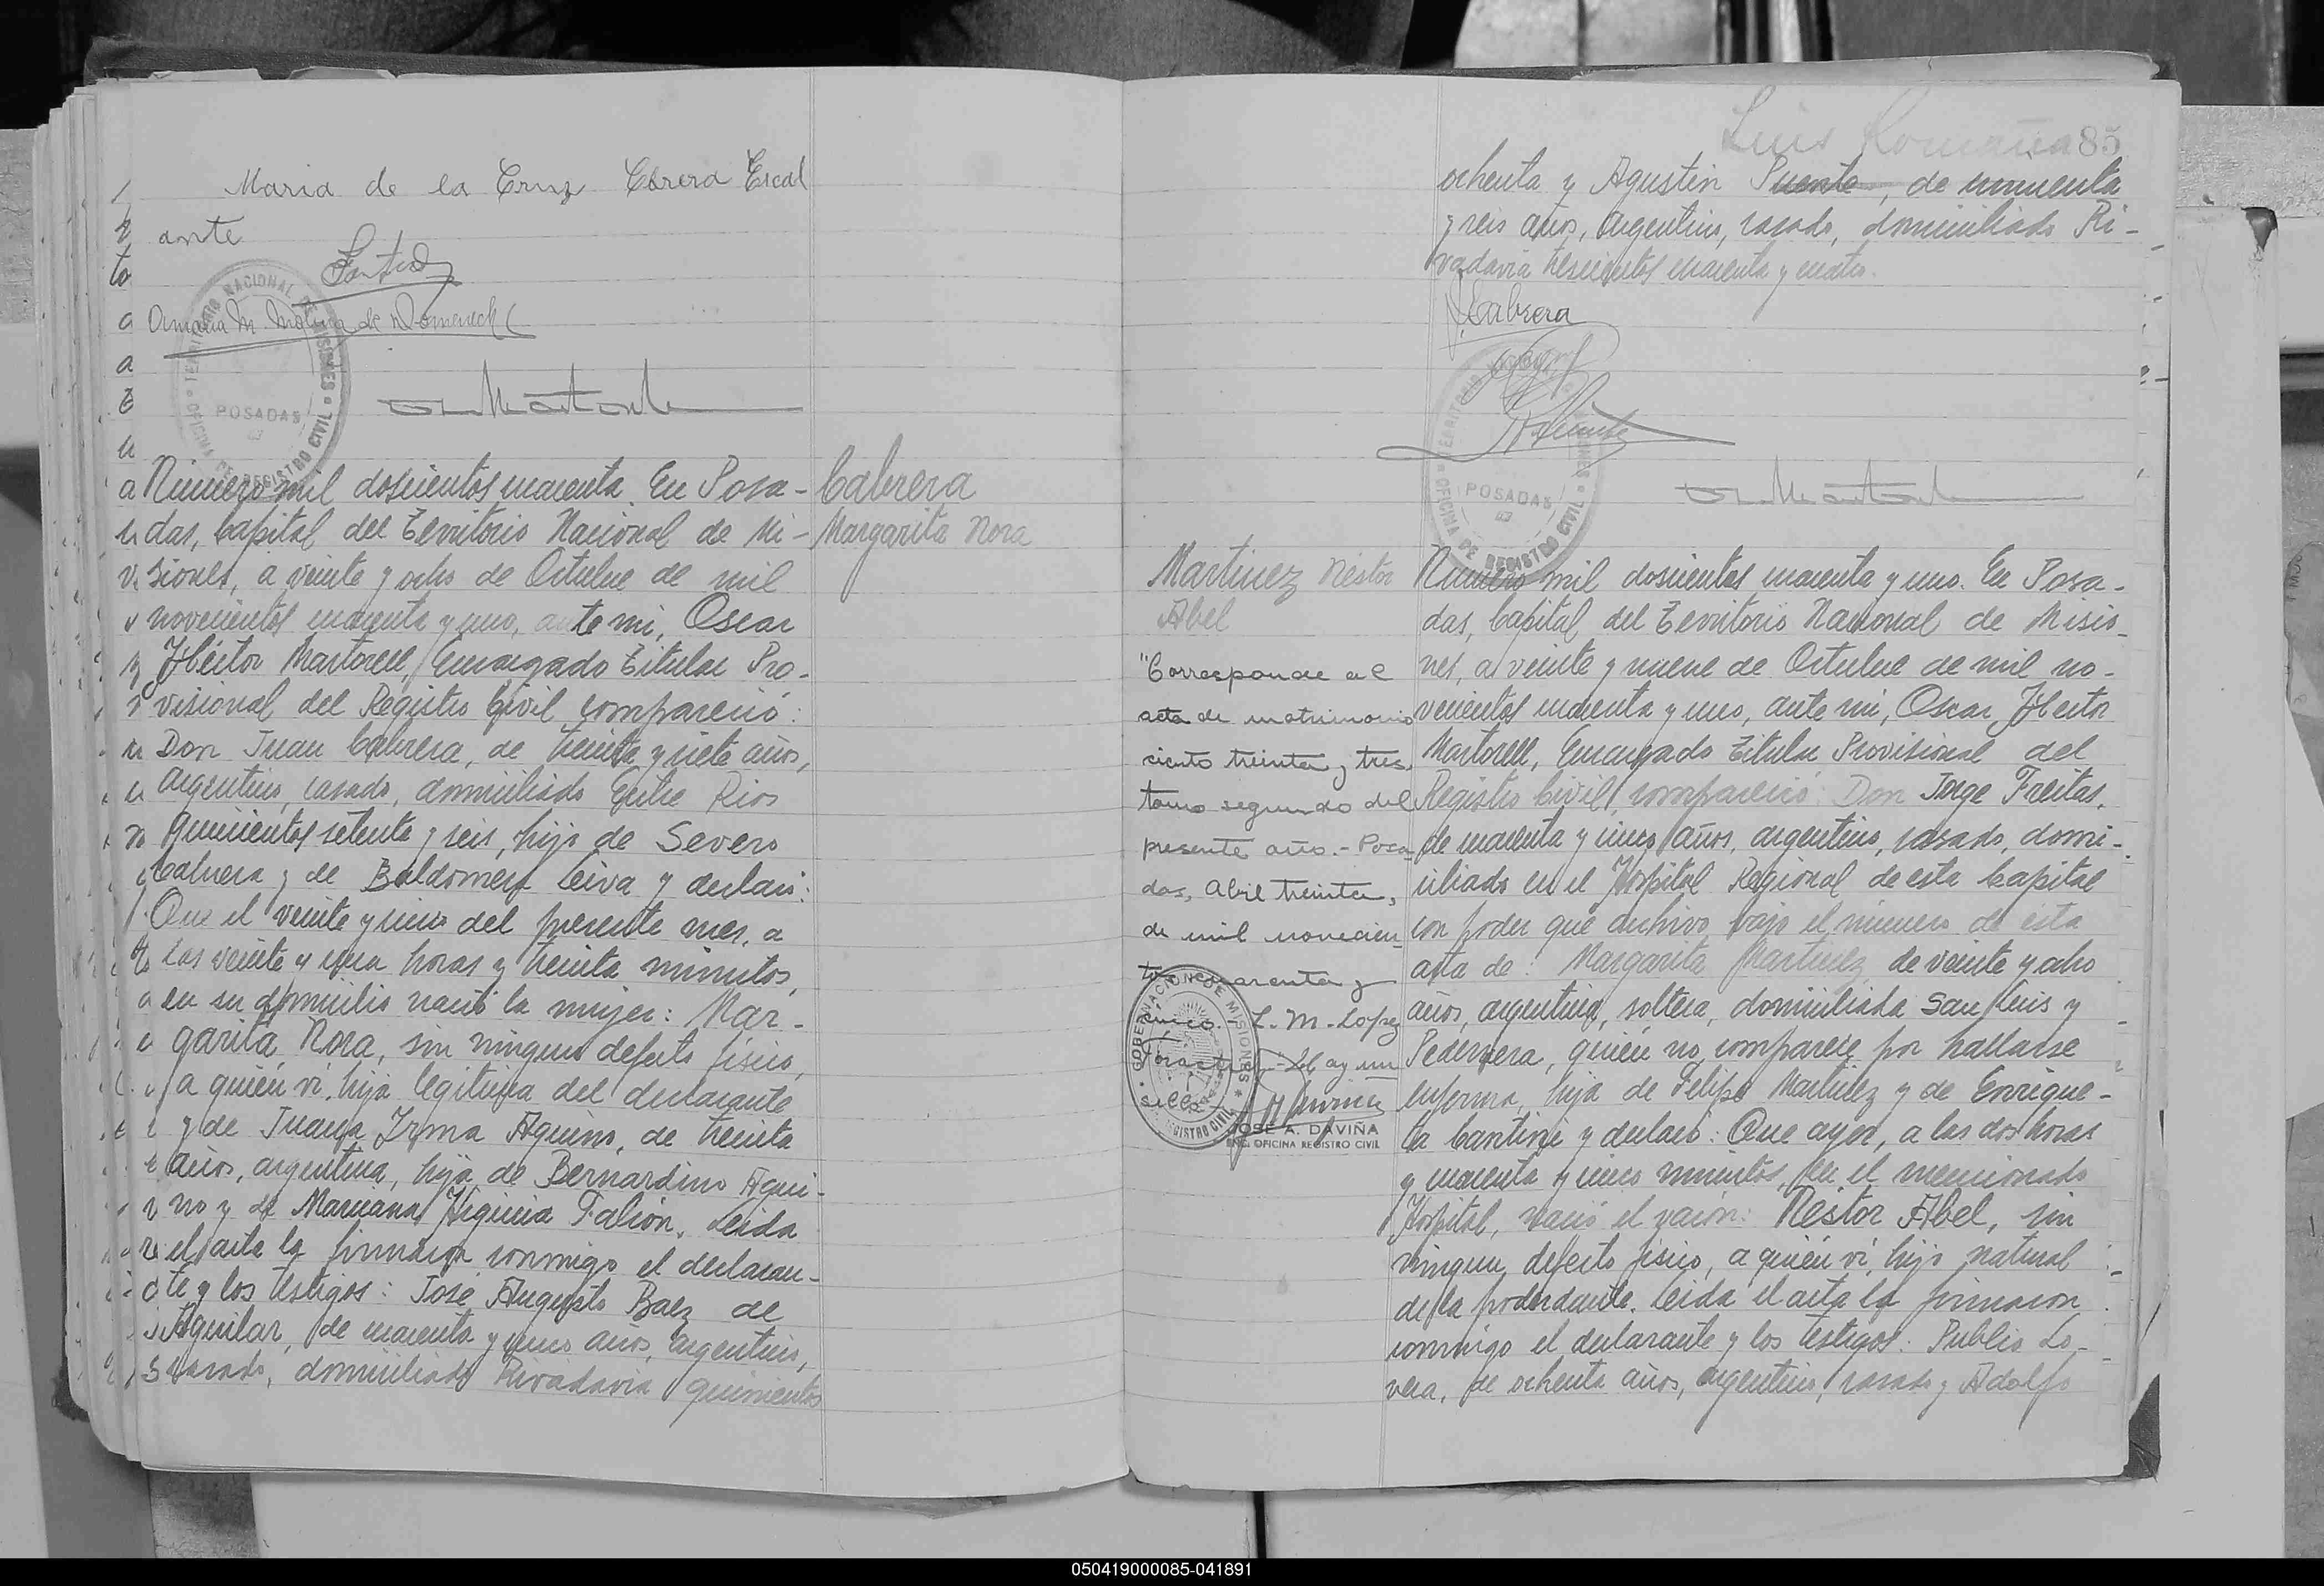 Maria de la Cruz Cbrera Escal
ante
Amalia M. Molina de Domenech
TERRITORIO NACIONAL DE MISIONES
POSADAS
OFICINA DE REGISTRO CIVIL
Cabrera
Margarita Nora
Número mil doscientos cuarenta. En Posa-
das, Capital del Territorio Nacional de Mi-
siones, a veinte y ocho de Octubre de mil
novecientos cuarenta y uno, ante mi, Oscar
Héctor Martorell, Encargado Titular Pro-
visional del Registro Civil compareció:
Don Juan Cabrera, de treinta y siete años,
argentino, casado, domiciliado Entre Rios
quinientos setenta y seis, hijo de Severo
Cabrera y de Baldomera Leiva y declaró:
Que el veinte y cinco del presente mes, a
las veinte y una horas y treinta minutos,
en su domicilio nació la mujer: Mar-
garita Nora, sin ningun defecto físico,
a quién ví, hija legítima del declarante
y de Juana Irma Aquino, de treinta
años, argentina, hija de Bernardino Aqui-
no y de Mariana Higinia Falcón. Leida
el acta la firmaron conmigo el declaran-
te y los testigos: José Augusto Baez de
Aguilar, de cuarenta y cinco años, argentino,
casado, domiciliado Rivadavia quinientos
Luis Romaña 85
ochenta y Agustin Puente, de cuarenta
y seis años, argentino, casado, domiciliado Ri-
vadavia trescientos cuarenta y cuatro.
J. Cabrera
POSADAS
OFICINA DE REGISTRO CIVIL
Martinez Néstor
Abel
"Corresponde al
acta de matrimonio
ciento treinta y tres,
tomo segundo del
presente año.- Posa-
das, Abril treinta,
de mil novecien-
tos cuarenta y
cinco. L. M. Lopez
Hay un
sello
GOBERNACION DE MISIONES
REGISTRO CIVIL
JOSE A. DAVIÑA
ENC. OFICINA REGISTRO CIVIL
Número mil doscientos cuarenta y uno. En Posa-
das, Capital del Territorio Nacional de Misio-
nes, a veinte y nueve de Octubre de mil no-
vecientos cuarenta y uno, ante mi, Oscar Héctor
Martorell, Encargado Titular Provisional del
Registro Civil, compareció: Don Jorge Freitas,
de cuarenta y cinco años, argentino, casado, domi-
ciliado en el Hospital Regional de esta Capital
con poder que archivo bajo el número de esta
acta de: Margarita Martinez de veinte y ocho
años, argentina, soltera, domiciliada San Luis y
Pedernera, quién no comparece por hallarse
enferma, hija de Felipe Martinez y de Enrique-
ta Cantini y declaró: Que ayer, a las dos horas
y cuarenta y cinco minutos, en el mencionado
Hospital, nació el varón: Néstor Abel, sin
ningun defecto físico, a quién ví, hijo natural
de la poderdante. Leida el acta la firmaron
conmigo el declarante y los testigos: Publio Lo-
vera, de ochenta años, argentino, casado y Adolfo
050419000085-041891